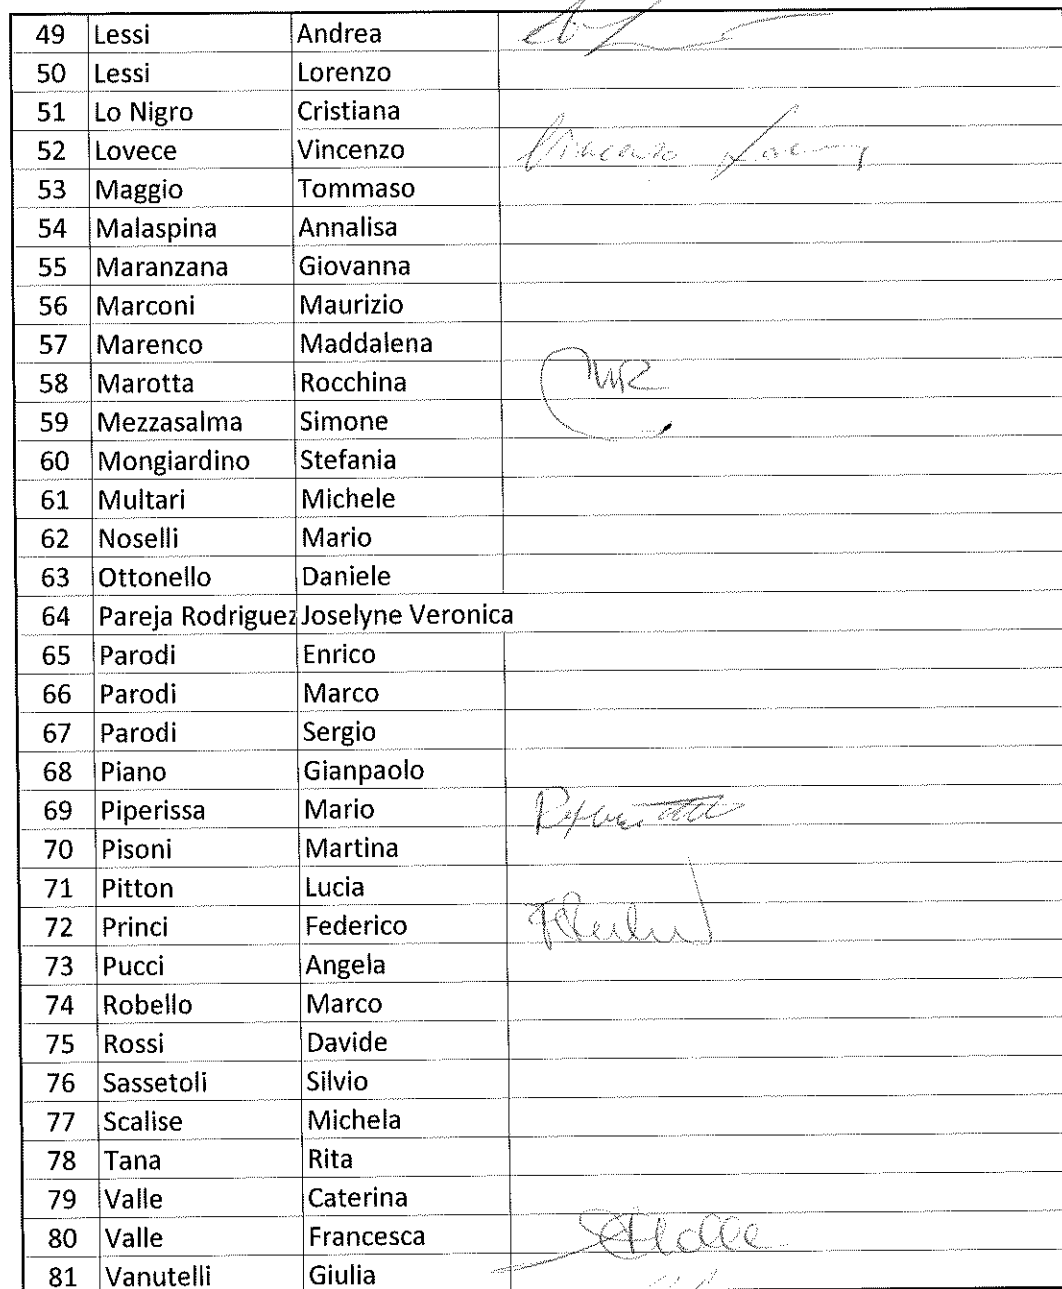 49 Lessi Andrea
50 Lessi Lorenzo
51 Lo Nigro Cristiana
52 Lovece Vincenzo Vincenzo
53 Maggio Tommaso
54 Malaspina Annalisa
55 Maranzana Giovanna
56 Marconi Maurizio
57 Marenco Maddalena
58 Marotta Rocchina
59 Mezzasalma Simone
60 Mongiardino Stefania
61 Multari Michele
62 Noselli Mario
63 Ottonello Daniele
64 Pareja Rodriguez Joselyne Veronica
65 Parodi Enrico
66 Parodi Marco
67 Parodi Sergio
68 Piano Gianpaolo
69 Piperissa Mario
70 Pisoni Martina
71 Pitton Lucia
72 Princi Federico
73 Pucci Angela
74 Robello Marco
75 Rossi Davide
76 Sassetoli Silvio
77 Scalise Michela
78 Tana Rita
79 Valle Caterina
80 Valle Francesca
81 Vanutelli Giulia